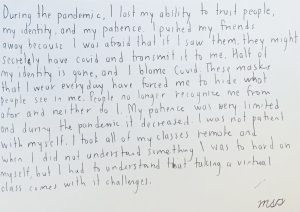 During the pandemic, I lost my ability to trust people,
my identity, and my patience. I pushed my friends
away because I was afraid that if I saw them, they might
secretely have covid and transmit it to me. Half of
my identity is gone, and I blame Covid. These masks
that I wear everyday have forced me to hide what
people see in me. People no longer recognize me from
afar and neither do I. My patience was very limited
and during the pandemic it decreased. I was not patient
with myself. I took all of my classes remote and
when I did not understand something I was to hard on
myself, but I had to understand that taking a virtual
class comes with it challenges.